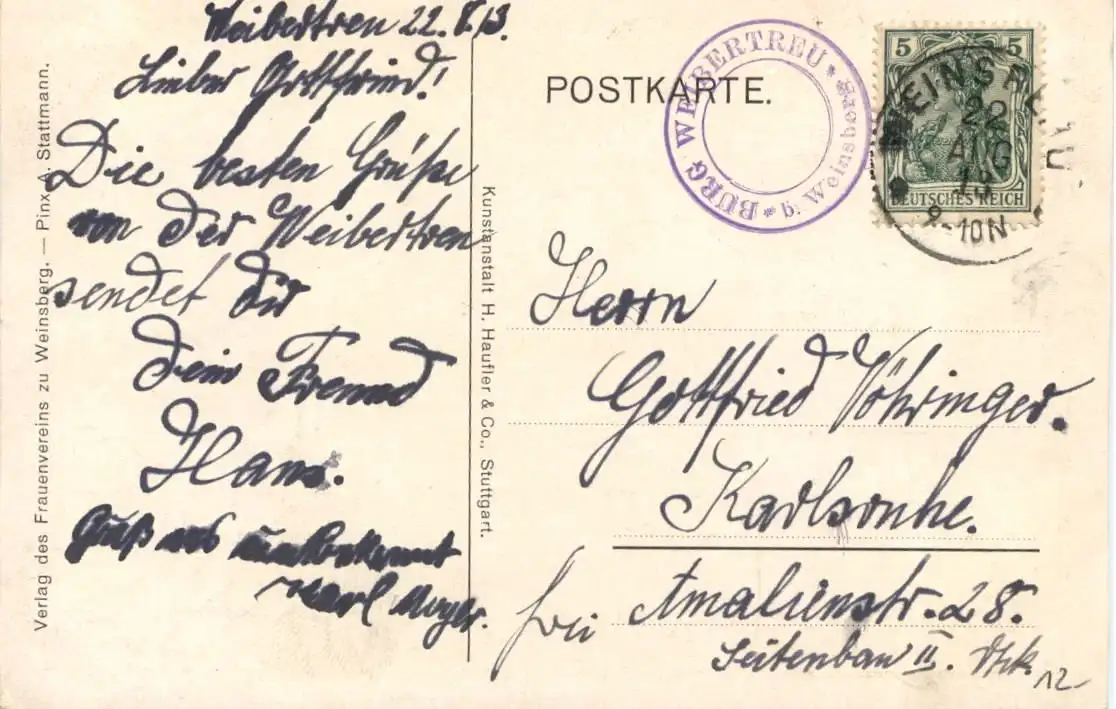 Weibertreu 22.8.13.
Lieber Gottfried!
Die besten Grüße
von der Weibertreu
sendet dir
Dein Freund
Hans.
Gruß als unbekannt
Karl Mayer.
Verlag des Frauenvereins zu Weinsberg. — Pinx A. Stattmann.
Kunstanstalt H. Haufler & Co., Stuttgart.
POSTKARTE.
BURG WEIBERTREU
* b. Weinsberg *
5 5
DEUTSCHES REICH
WEINSBERG
22
AUG
13
8-10N
Herrn
Gottfried Vöhringer.
Karlsruhe.
frei Amalienstr. 28.
Seitenbau II. Stck.
12